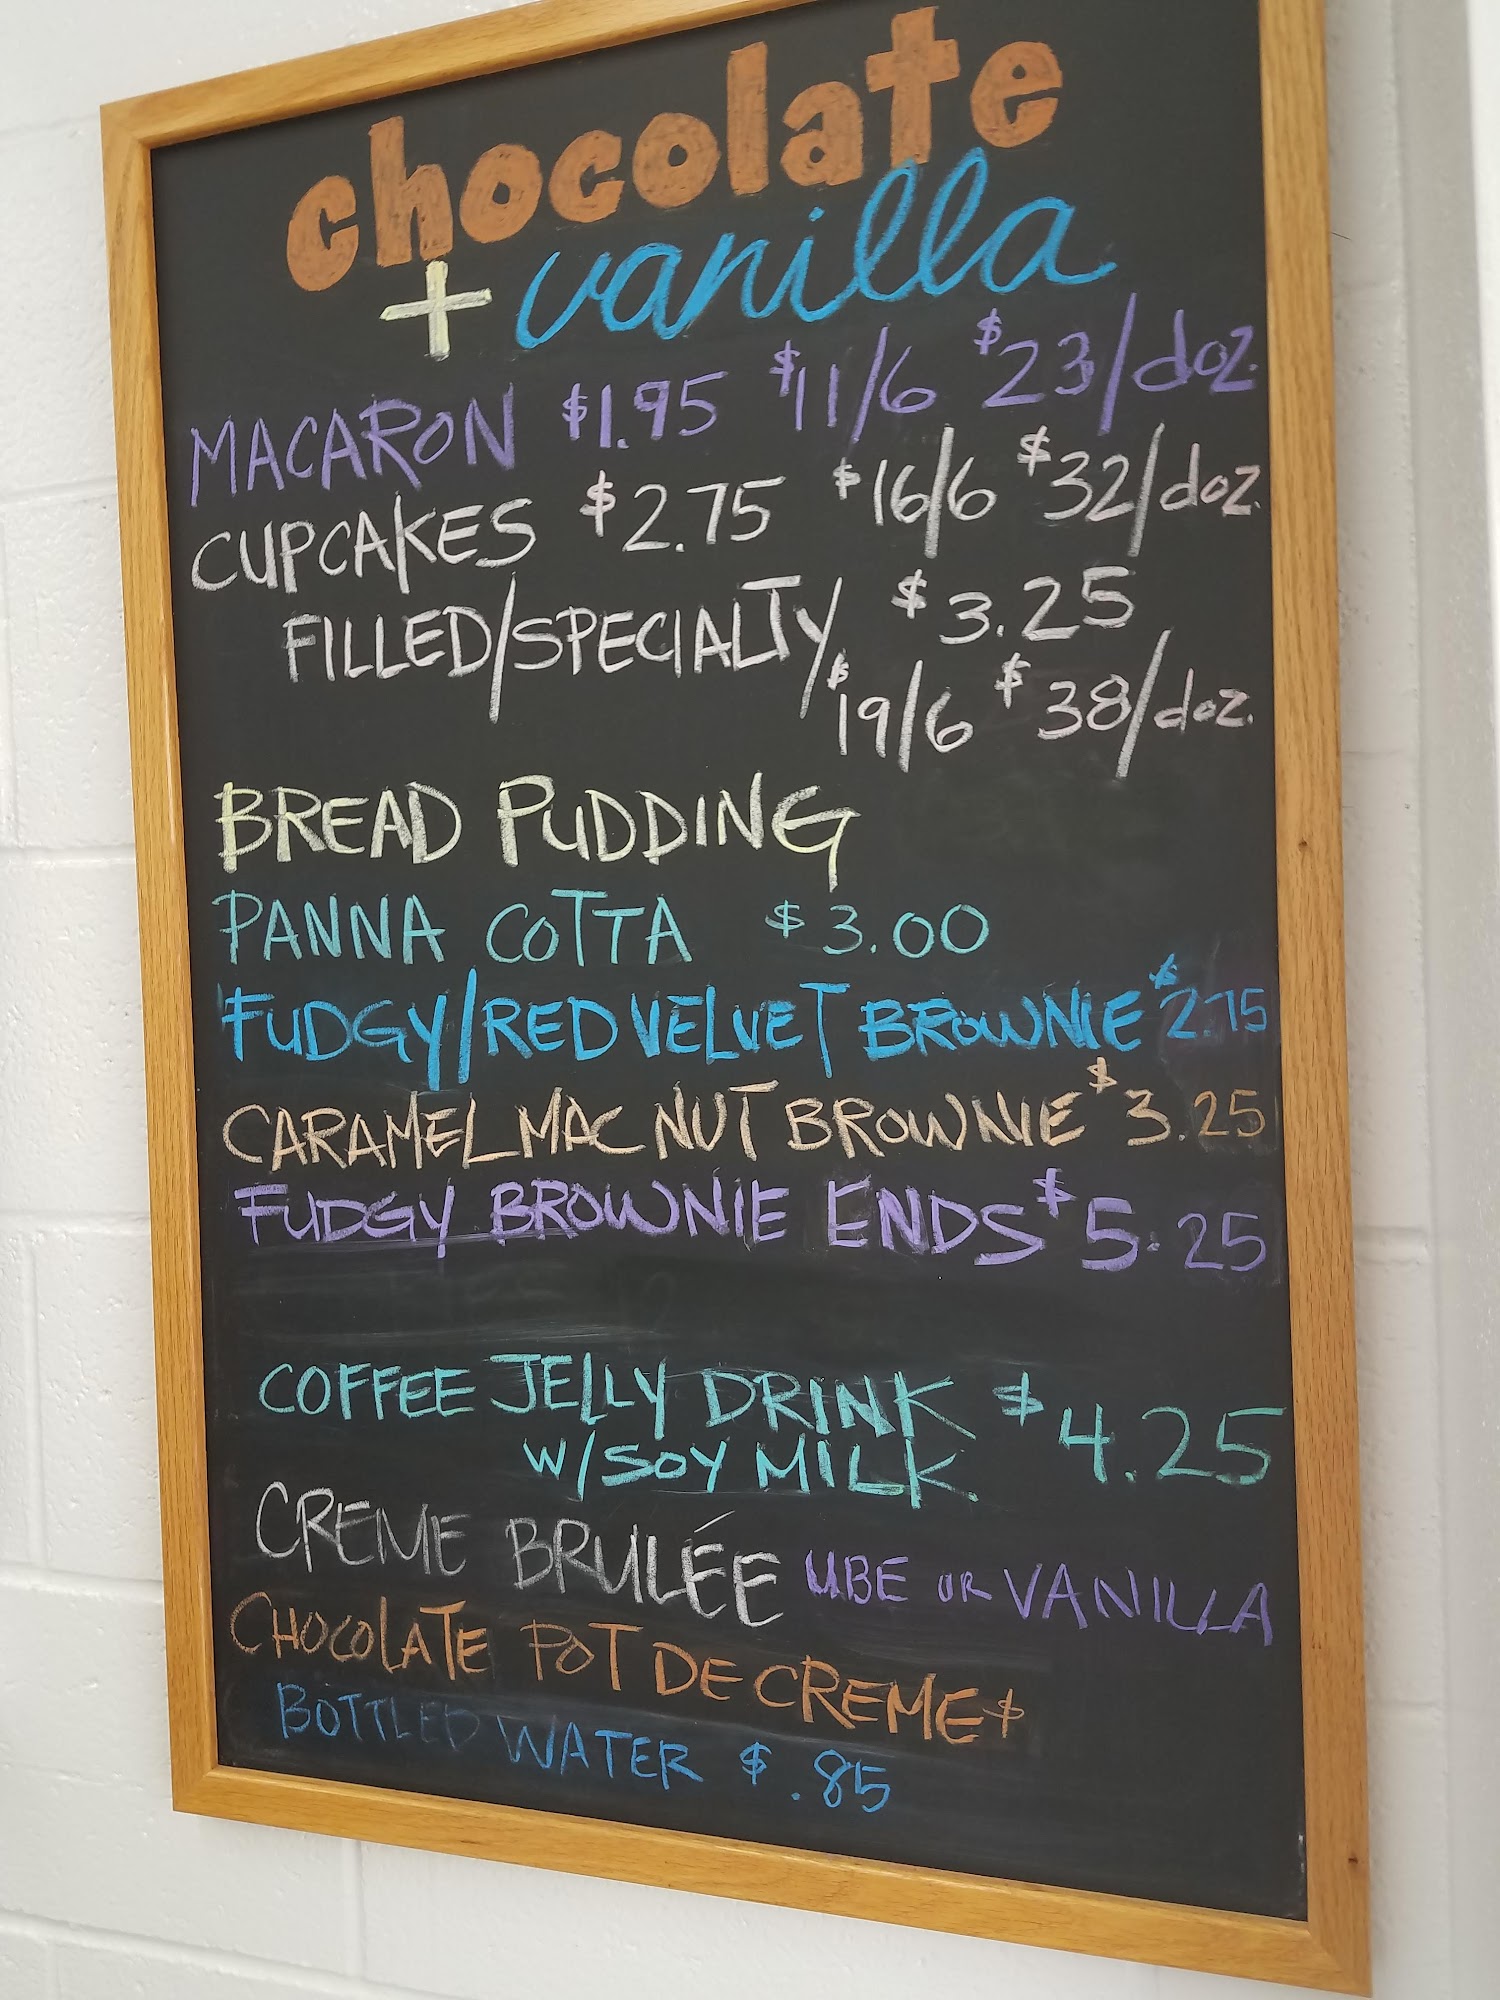 chocolate
+ vanilla
MACARON $1.95 $11/6 $23/doz.
CUPCAKES $2.75 $16/6 $32/doz.
FILLED/SPECIALTY $3.25
$19/6 $38/doz.
BREAD PUDDING
PANNA COTTA $3.00
FUDGY/RED VELVET BROWNIE $2.75
CARAMEL MAC NUT BROWNIE $3.25
FUDGY BROWNIE ENDS $5.25
COFFEE JELLY DRINK $4.25
W/SOY MILK
CREME BRULÉE UBE OR VANILLA
CHOCOLATE POT DE CREME $
BOTTLED WATER $.85